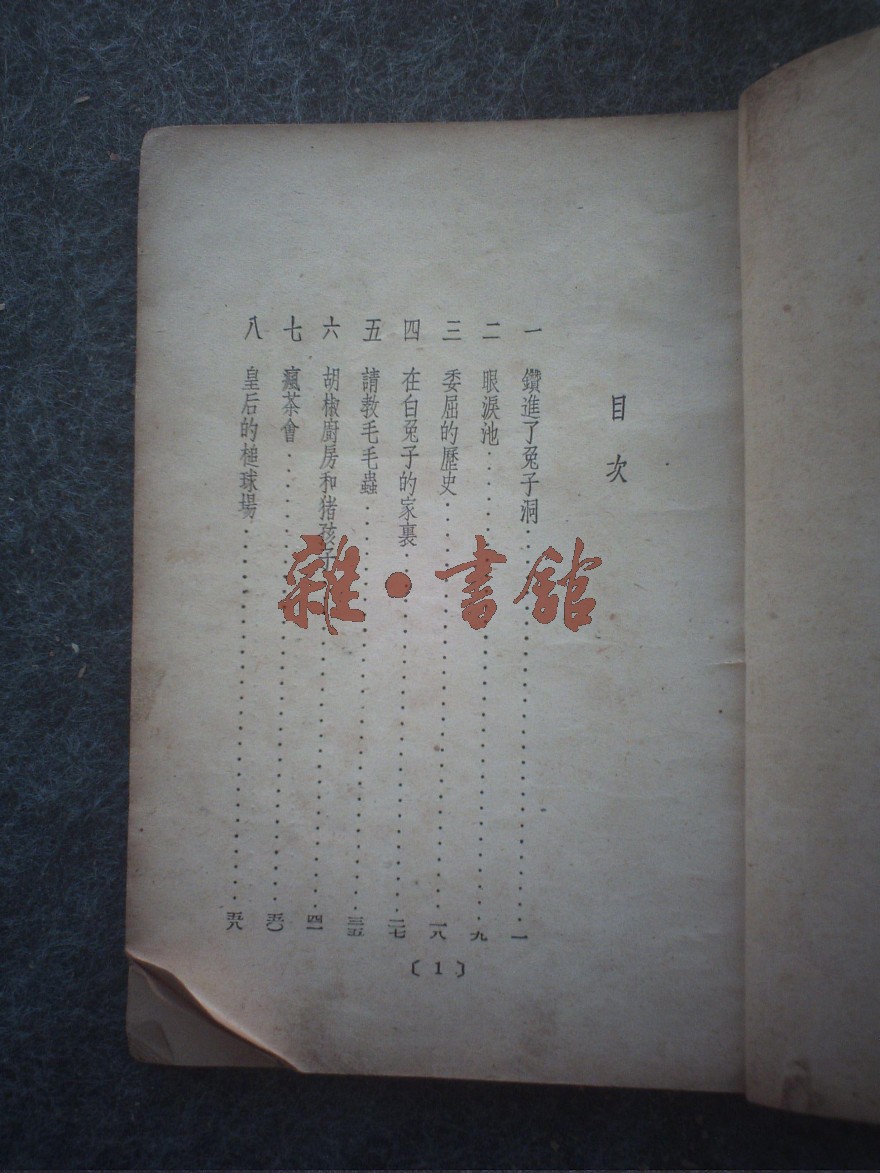 目次
一 鑽進了兔子洞 一
二 眼淚池 九
三 委屈的歷史 一八
四 在白兔子的家裏 二七
五 請教毛毛蟲 三五
六 胡椒廚房和猪孩子 四一
七 瘋茶會 五〇
八 皇后的槌球場 五八
〔1〕
雜·書館